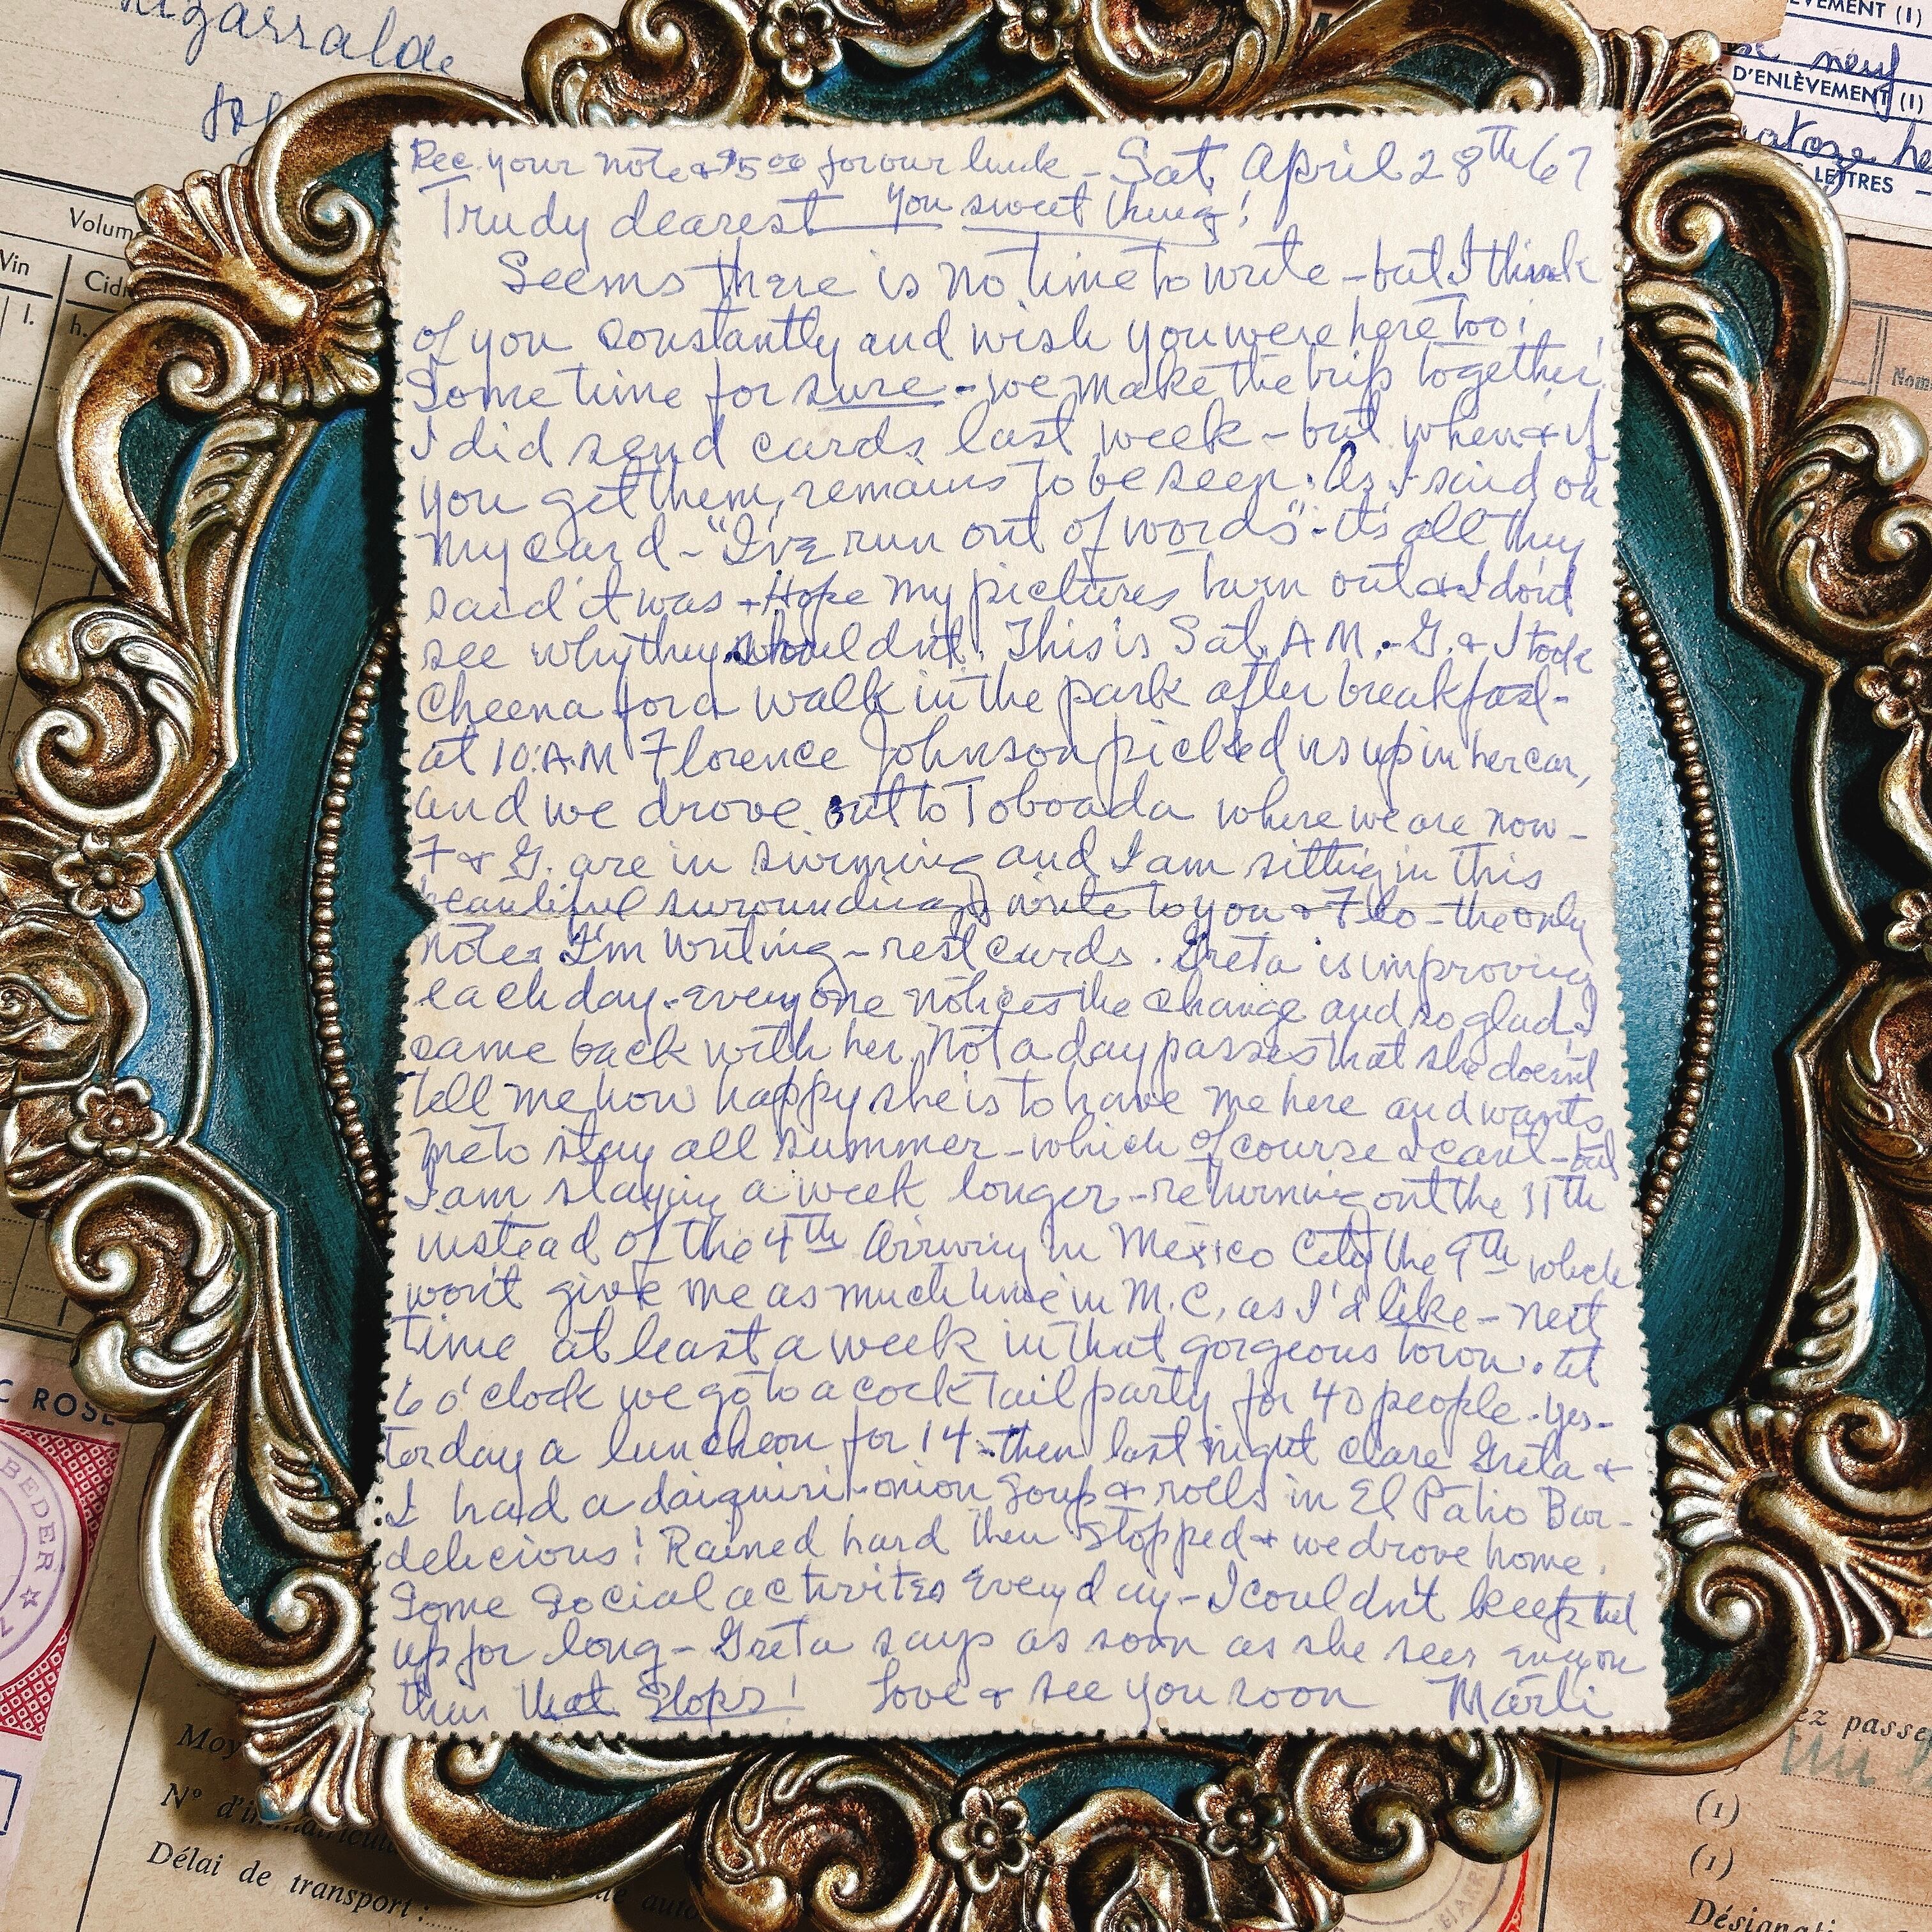 izarralde
VEMENT (I)
neuf
D'ENLÈVEMENT (I)
LETTRES
Volum
Vin
Cid
l.
h.
Nom
Rec. your note & $5.00 for our lunch - Sat. April 28th 67
Trudy dearest you sweet thing!
Seems there is no time to write - but I think
of you constantly and wish you were here too!
Some time for sure - we make the trip together.
I did send cards last week - but when & if
you get them, remains to be seen. As I said on
my card - "I've run out of words" - it's all they
said it was + Hope my pictures turn out & I don't
see why they shouldn't. This is Sat. A.M. - G. & I took
Cheena for a walk in the park after breakfast -
at 10:A.M Florence Johnson picked us up in her car,
and we drove out to Toboada where we are now -
F & G. are in swiming and I am sitting in this
beautiful surroundings write to you & Flo - the only
notes I'm writing - rest cards. Greta is improving
each day - everyone notices the change and so glad I
came back with her. Not a day passes that she doesn't
tell me how happy she is to have me here and wants
me to stay all summer - which of course I can't - but
I am staying a week longer - returning on the 11th
instead of the 4th Arriving in Mexico City the 9th which
won't give me as much time in M.C. as I'd like - next
time at least a week in that gorgeous town. At
6 o'clock we go to a cocktail party for 40 people. Yes-
terday a luncheon for 14 - then last night Clare Greta &
I had a daiquiri - onion soup & rolls in El Patio Bar -
delicious! Rained hard then stopped & we drove home.
Some social activites every day - I couldn't keep that
up for long - Greta says as soon as she sees
this that stops! Love & see you soon Marli
C ROSE
BEDER
Moy
N° d'immatricul
Délai de transport :
auto
ez passe
(1)
(1)
Désign